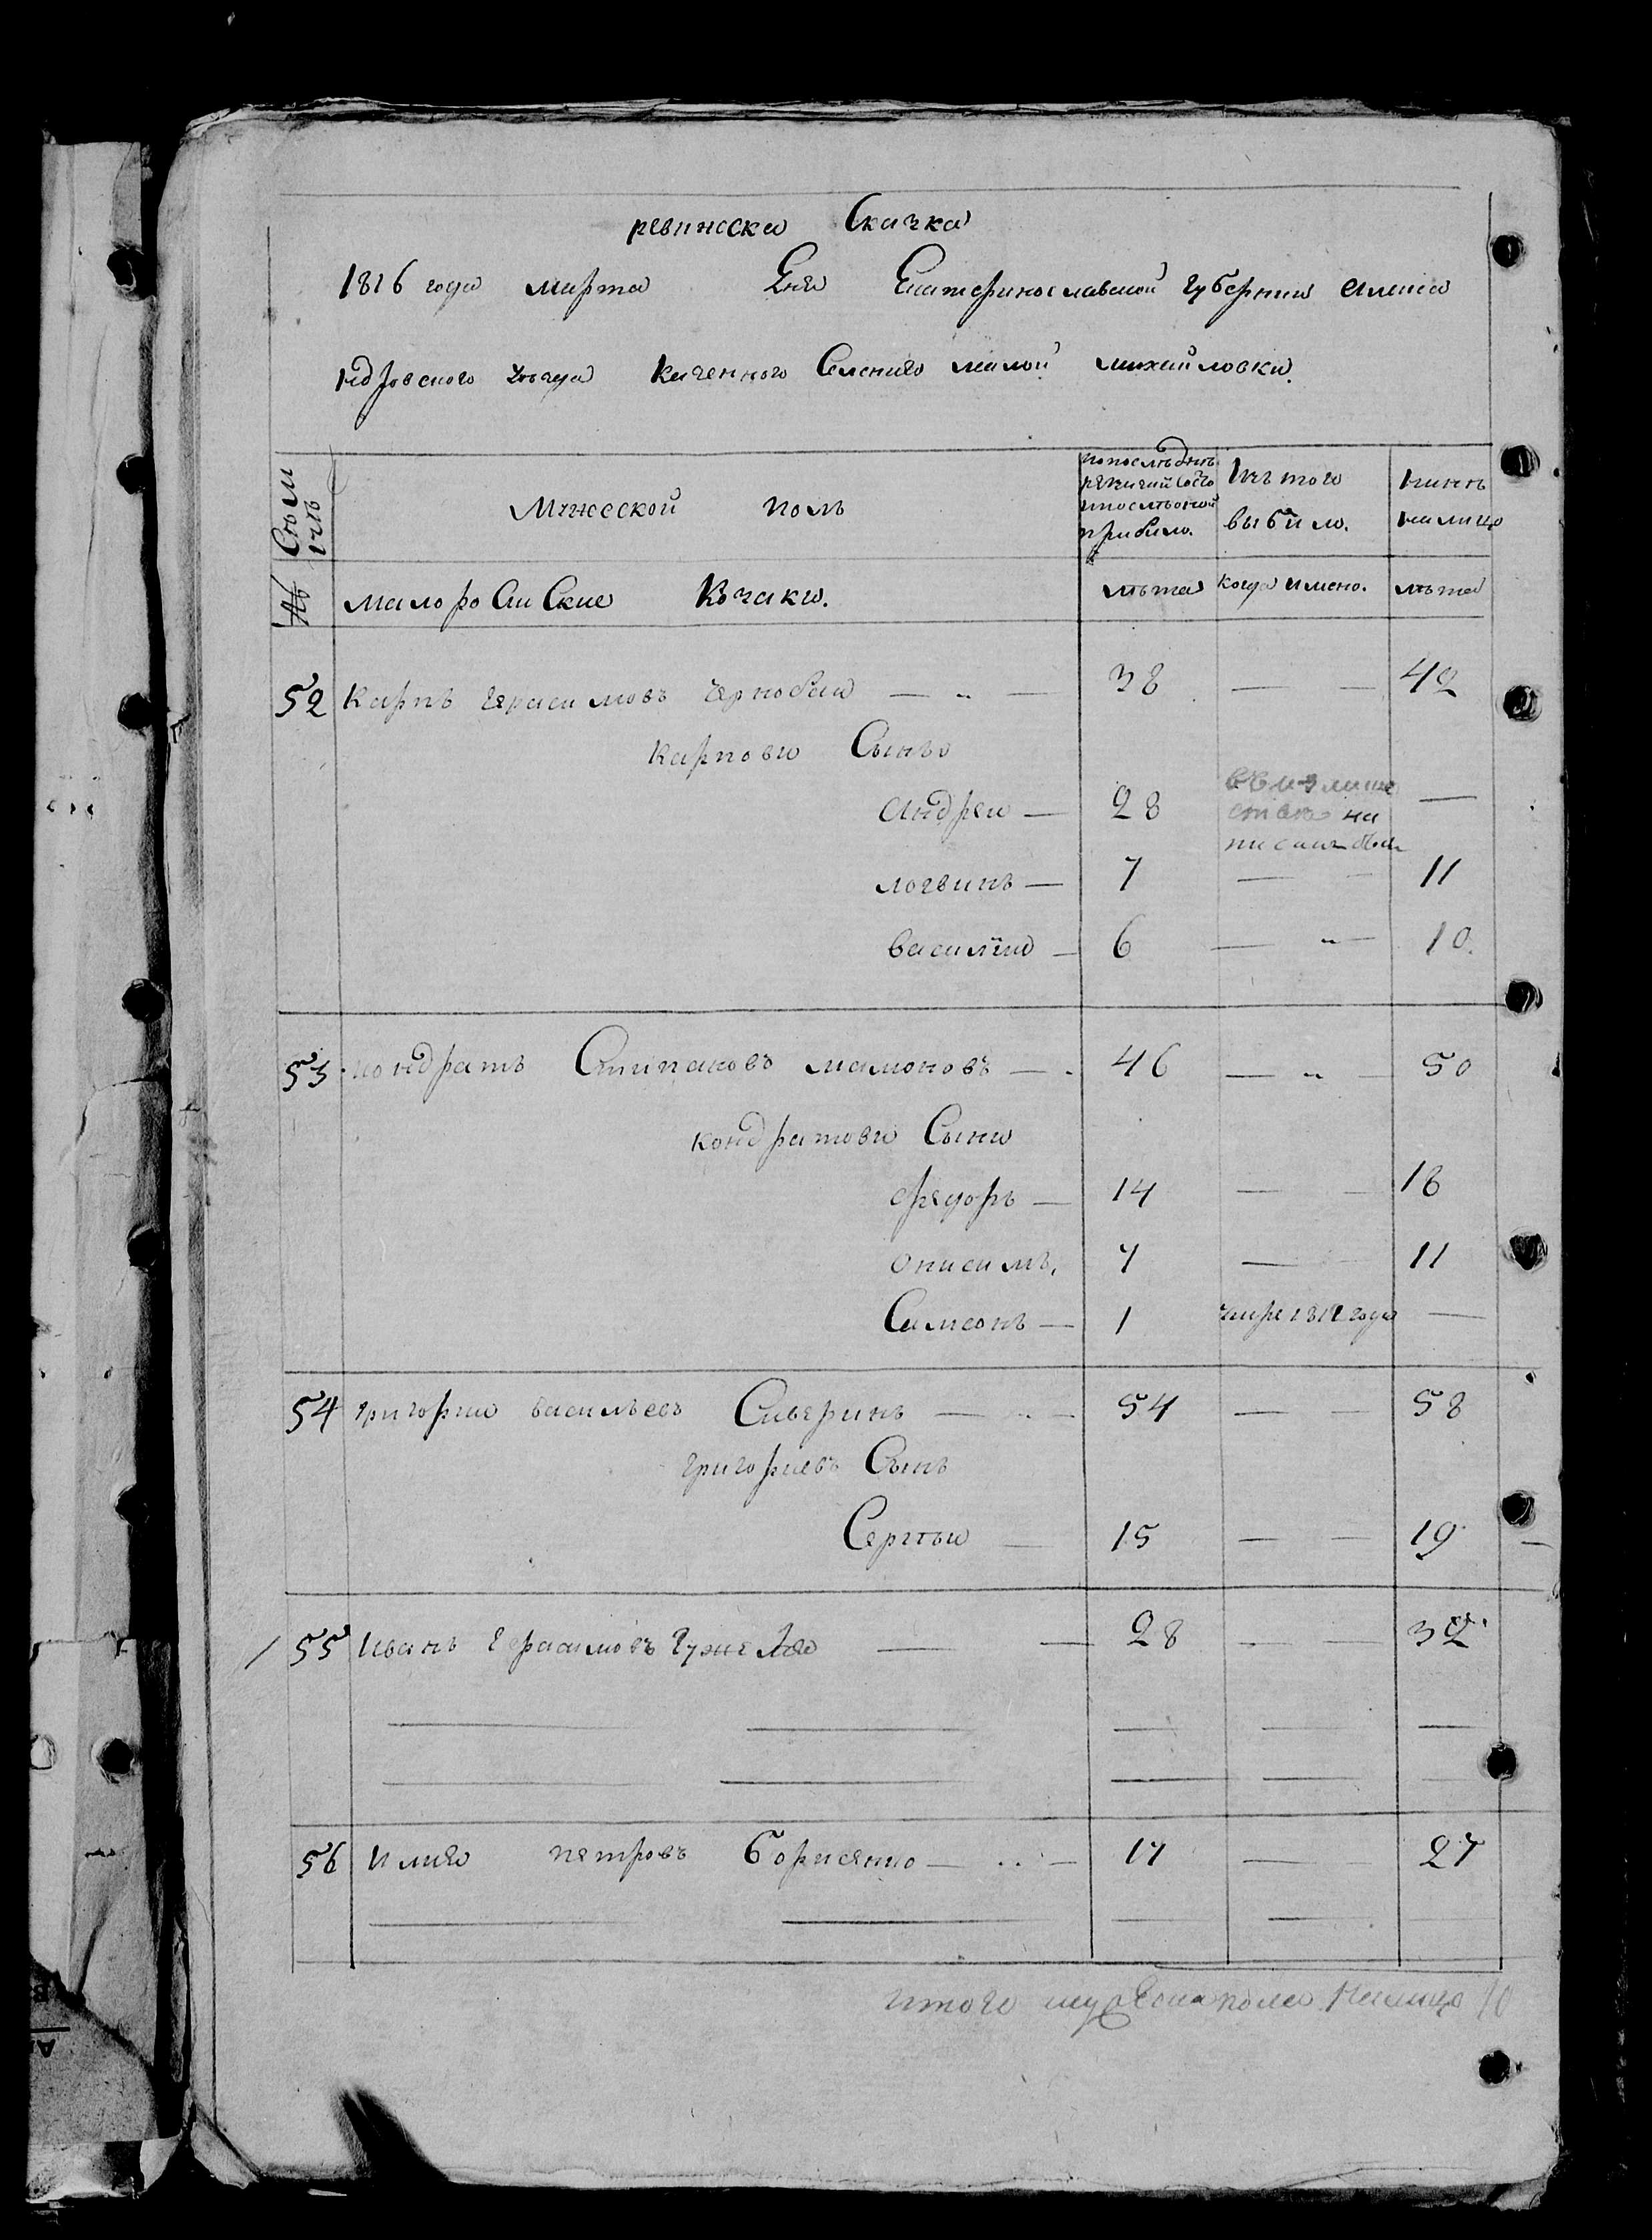 ревизска Сказка
1816 года марта дня Екатеринославской губернии Алекса
ндровского уезда казенного Селения малой михайловки.
Семьи
Мужеской полъ
по последней
ревизии состо
прибыло.
Изъ того
выбыло.
ныне
налицо
№ малоросийские козаки. лѣта когда имено. лѣта
52 карпъ герасимовъ чернобай — „ — 38 — — 42
карпови Сыны
андрей — 28 —
написанъ
логвинъ — 7 — — 11
василий — 6 — „ — 10.
53 кондратъ Стипановъ мамоновъ — . 46 — „ — 50
кондратови Сыни
федоръ — 14 — — 18
онисимъ, 7 — 11
Самсонъ — 1 умре 1812 года —
54 григорий васильевъ Сиверинъ — .. — 54 — — 58
григориевъ Сынъ
Сергѣй — 15 — — 19
55 иванъ герасимовъ гужеля — — 28 — — 32
56 илия петровъ борисенко — .. — 17 — 27
итого мужеска пола налицо 10